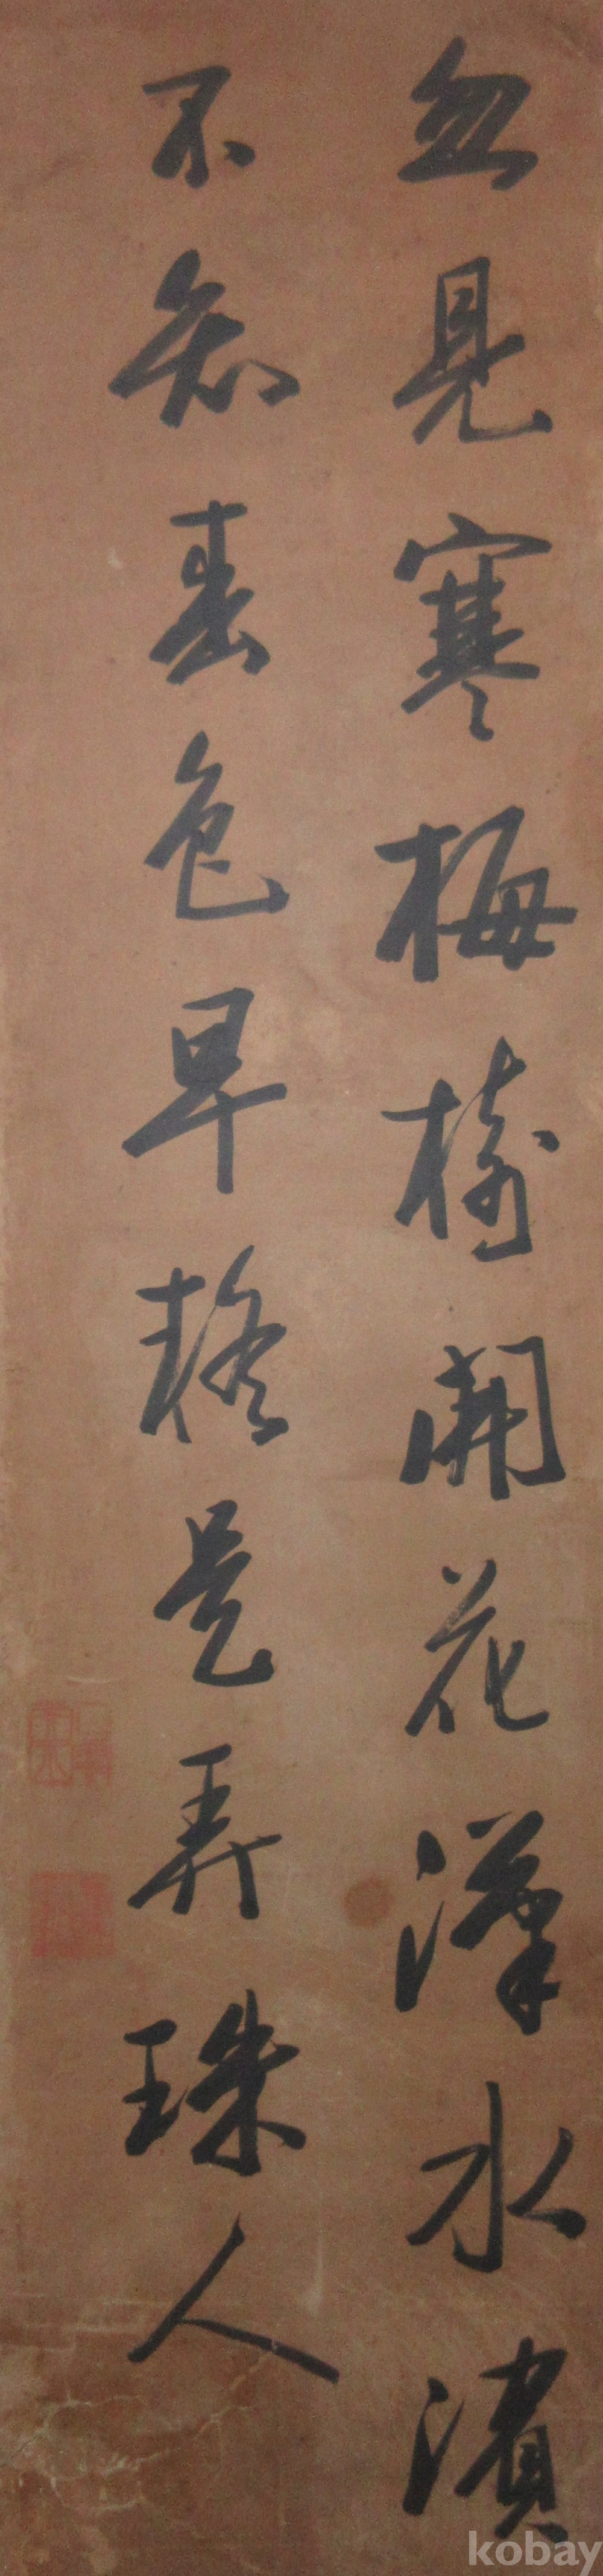 忽見寒梅樹開花漢水濱
不知春色早疑是弄珠人
kobay